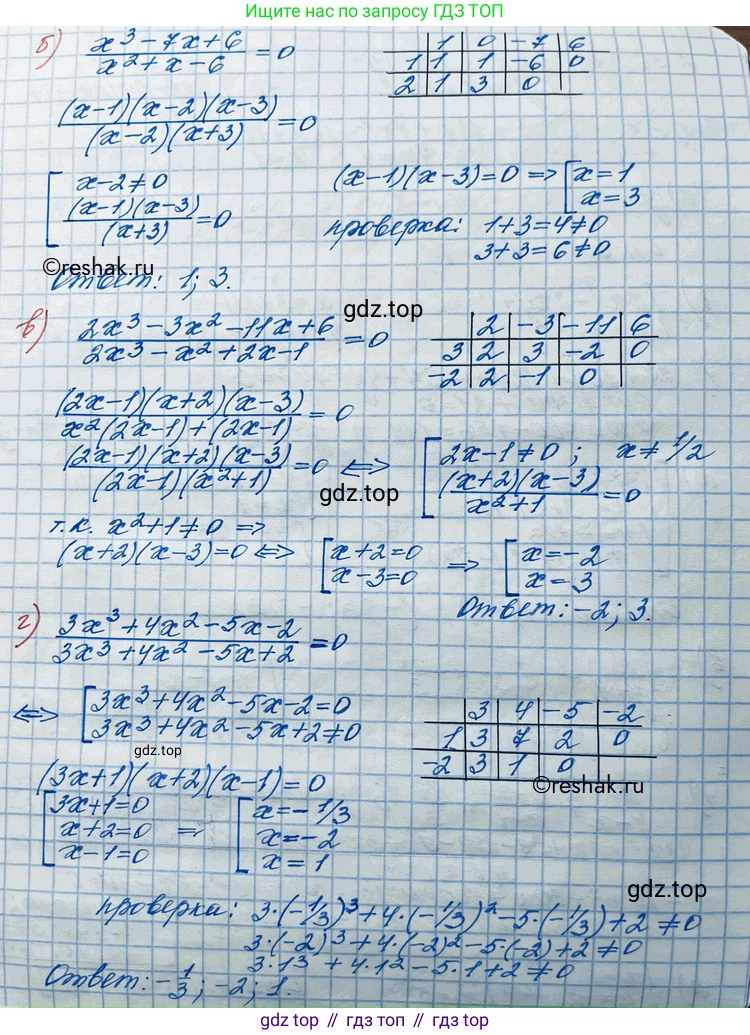 Ищите нас по запросу ГДЗ ТОП
б) (x³ - 7x + 6)/(x² + x - 6) = 0
1 0 -7 6
1 1 1 -6 0
2 1 3 0
((x-1)(x-2)(x-3))/((x-2)(x+3)) = 0
[ x-2≠0
((x-1)(x-3))/(x+3) = 0
(x-1)(x-3)=0 => [ x=1
x=3
проверка: 1+3=4≠0
3+3=6≠0
©reshak.ru
Ответ: 1; 3.
gdz.top
в) (2x³ - 3x² - 11x + 6)/(2x³ - x² + 2x - 1) = 0
2 -3 -11 6
3 2 3 -2 0
-2 2 -1 0
((2x-1)(x+2)(x-3))/(x²(2x-1)+(2x-1)) = 0
((2x-1)(x+2)(x-3))/((2x-1)(x²+1)) = 0 <=> [ 2x-1≠0 ; x≠1/2
((x+2)(x-3))/(x²+1) = 0
gdz.top
т.к. x²+1≠0 =>
(x+2)(x-3)=0 <=> [ x+2=0
x-3=0
=> [ x=-2
x=3
Ответ: -2; 3.
г) (3x³+4x²-5x-2)/(3x³+4x²-5x+2) = 0
<=> [ 3x³+4x²-5x-2=0
3x³+4x²-5x+2≠0
gdz.top
3 4 -5 -2
1 3 7 2 0
-2 3 1 0
©reshak.ru
(3x+1)(x+2)(x-1)=0
[ 3x+1=0
x+2=0
x-1=0
=> [ x=-1/3
x=-2
x=1
gdz.top
проверка: 3·(-1/3)³+4·(-1/3)²-5·(-1/3)+2≠0
3·(-2)³+4·(-2)²-5·(-2)+2≠0
3·1³+4·1²-5·1+2≠0
Ответ: -1/3; -2; 1.
gdz.top // gdz.top // gdz.top // gdz.top